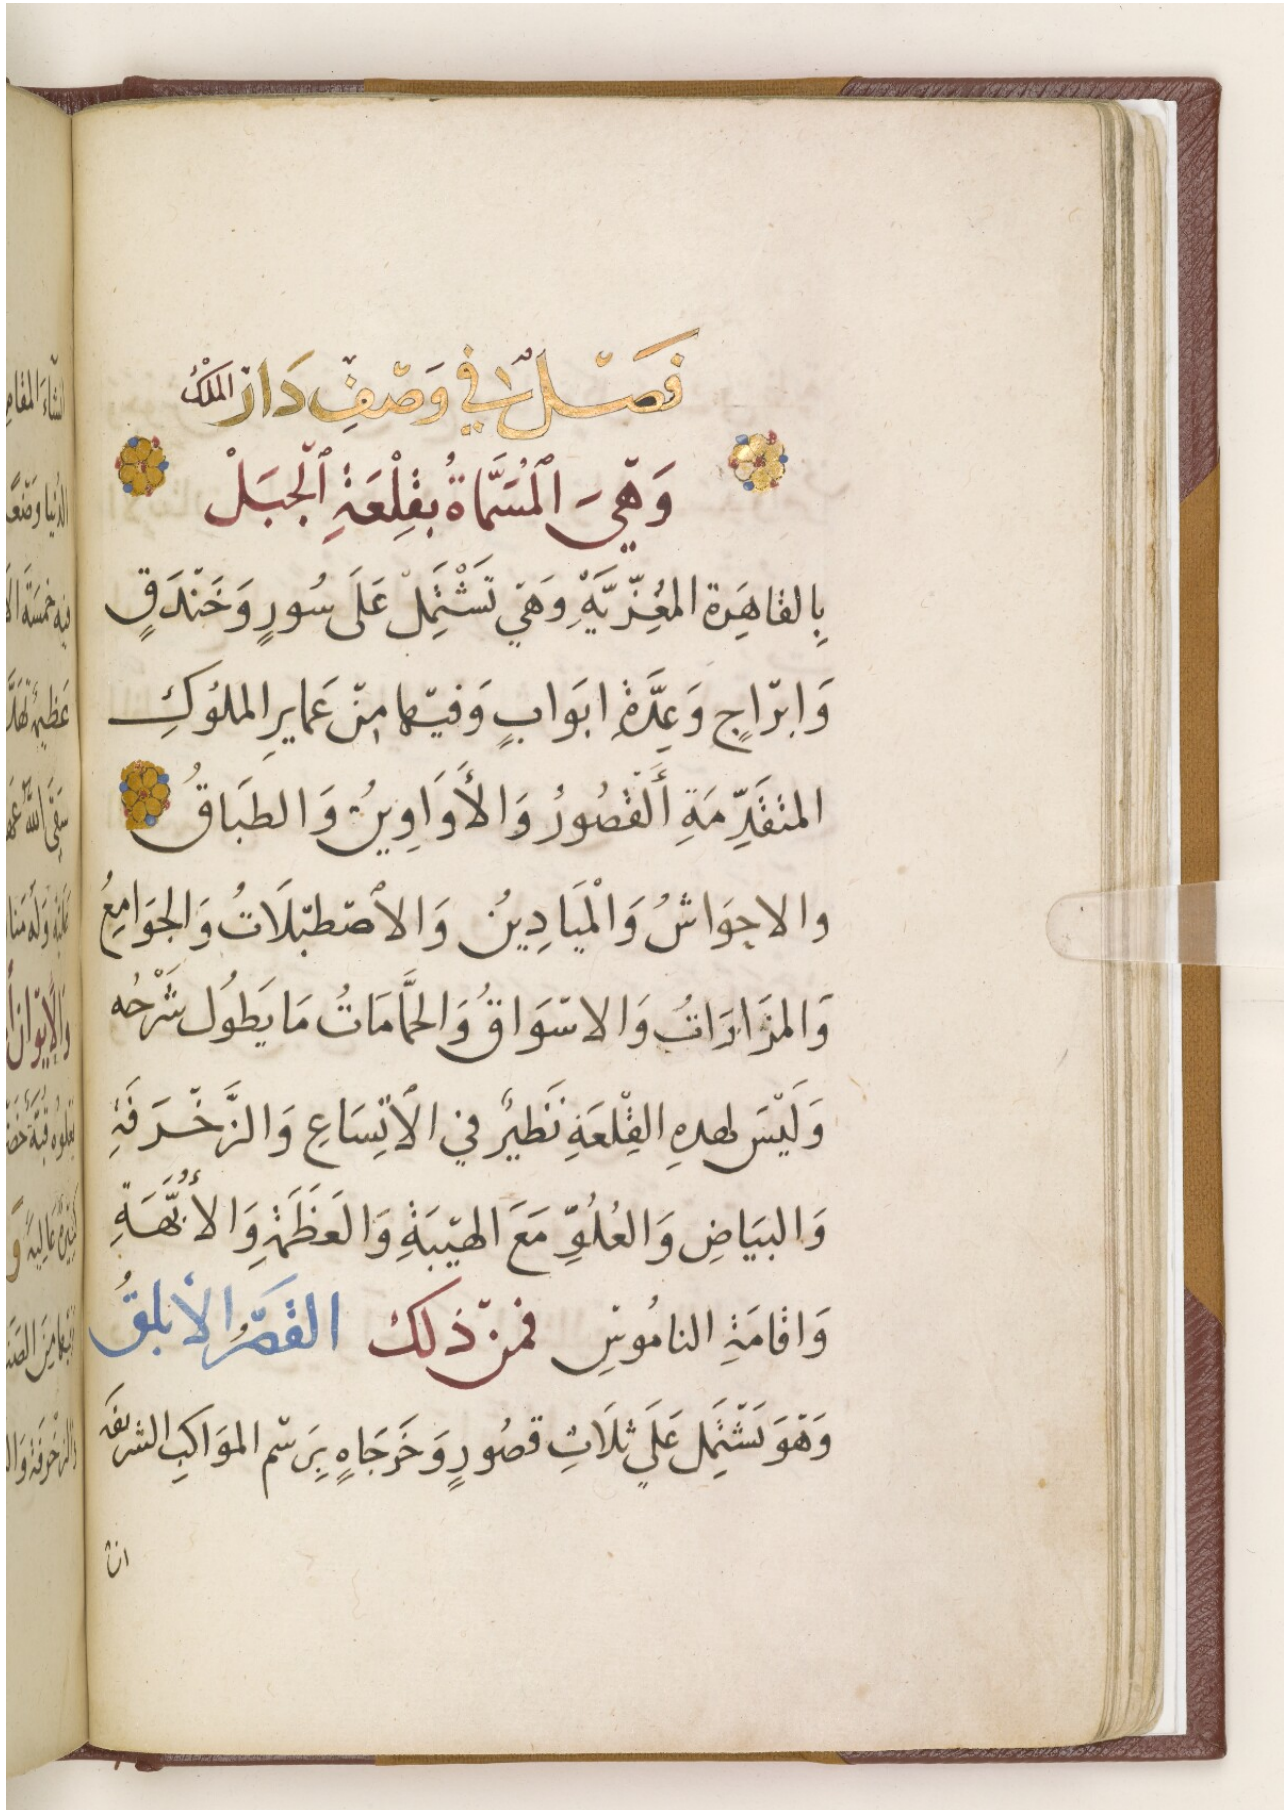 فَصْلٌ في وَصْفِ دَارْ المُلْكْ
وَهْيَ الْمُسَمَّاةُ بِقَلْعَةِ الْجَبَلْ
بِالقاهِرة المعُزِّيَّةِ وَهَيْ تَشْتَمِلْ عَلَى سُورٍ وَخَنْدَقٍ
وَابْرَاجٍ وَعِدَّةِ ابوَابٍ وَفيْها مِنْ عَمايرِ الملُوكِ
المتقَدِّمَةِ أَلْقصُورُ وَالأَوَاوِينُ وَالطبَاقُ
والاحوَاشُ وَالْميَادِينُ وَالاصْطبْلَاتُ وَالجوَامِعُ
وَالمزَارَاتُ وَالاسْوَاقُ وَالحَمَّامَاتُ مَا يَطُول شَرْحُه
وَلَيْسَ لهدهِ القِلْعَةِ نَظيرٌ في الاتِسَاعِ وَالزَّخْرَفَةِ
وَالبيَاضِ وَالعُلُوِّ مَعَ الهيْبَةِ وَالعَظَمَةِ وَالأُبَّهَةِ
وَاقامَةِ النامُوسِ فمنْ ذلك القَصْرُ الأبلقُ
وَهْوَ يَشْتَمِل عَلَي ثلَاثِ قصُورٍ وَخَرَجَاهٍ بِرَسْم المَوَاكِبِ الشريفَه